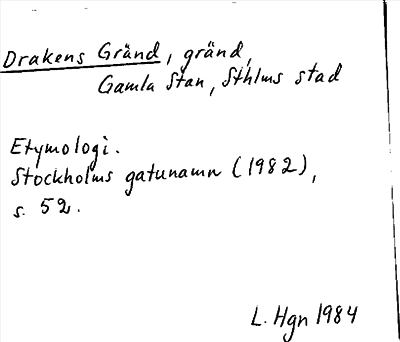 Drakens Gränd, gränd,
Gamla Stan, Sthlms stad
Etymologi.
Stockholms gatunamn (1982),
s. 52.
L. Hgn 1984